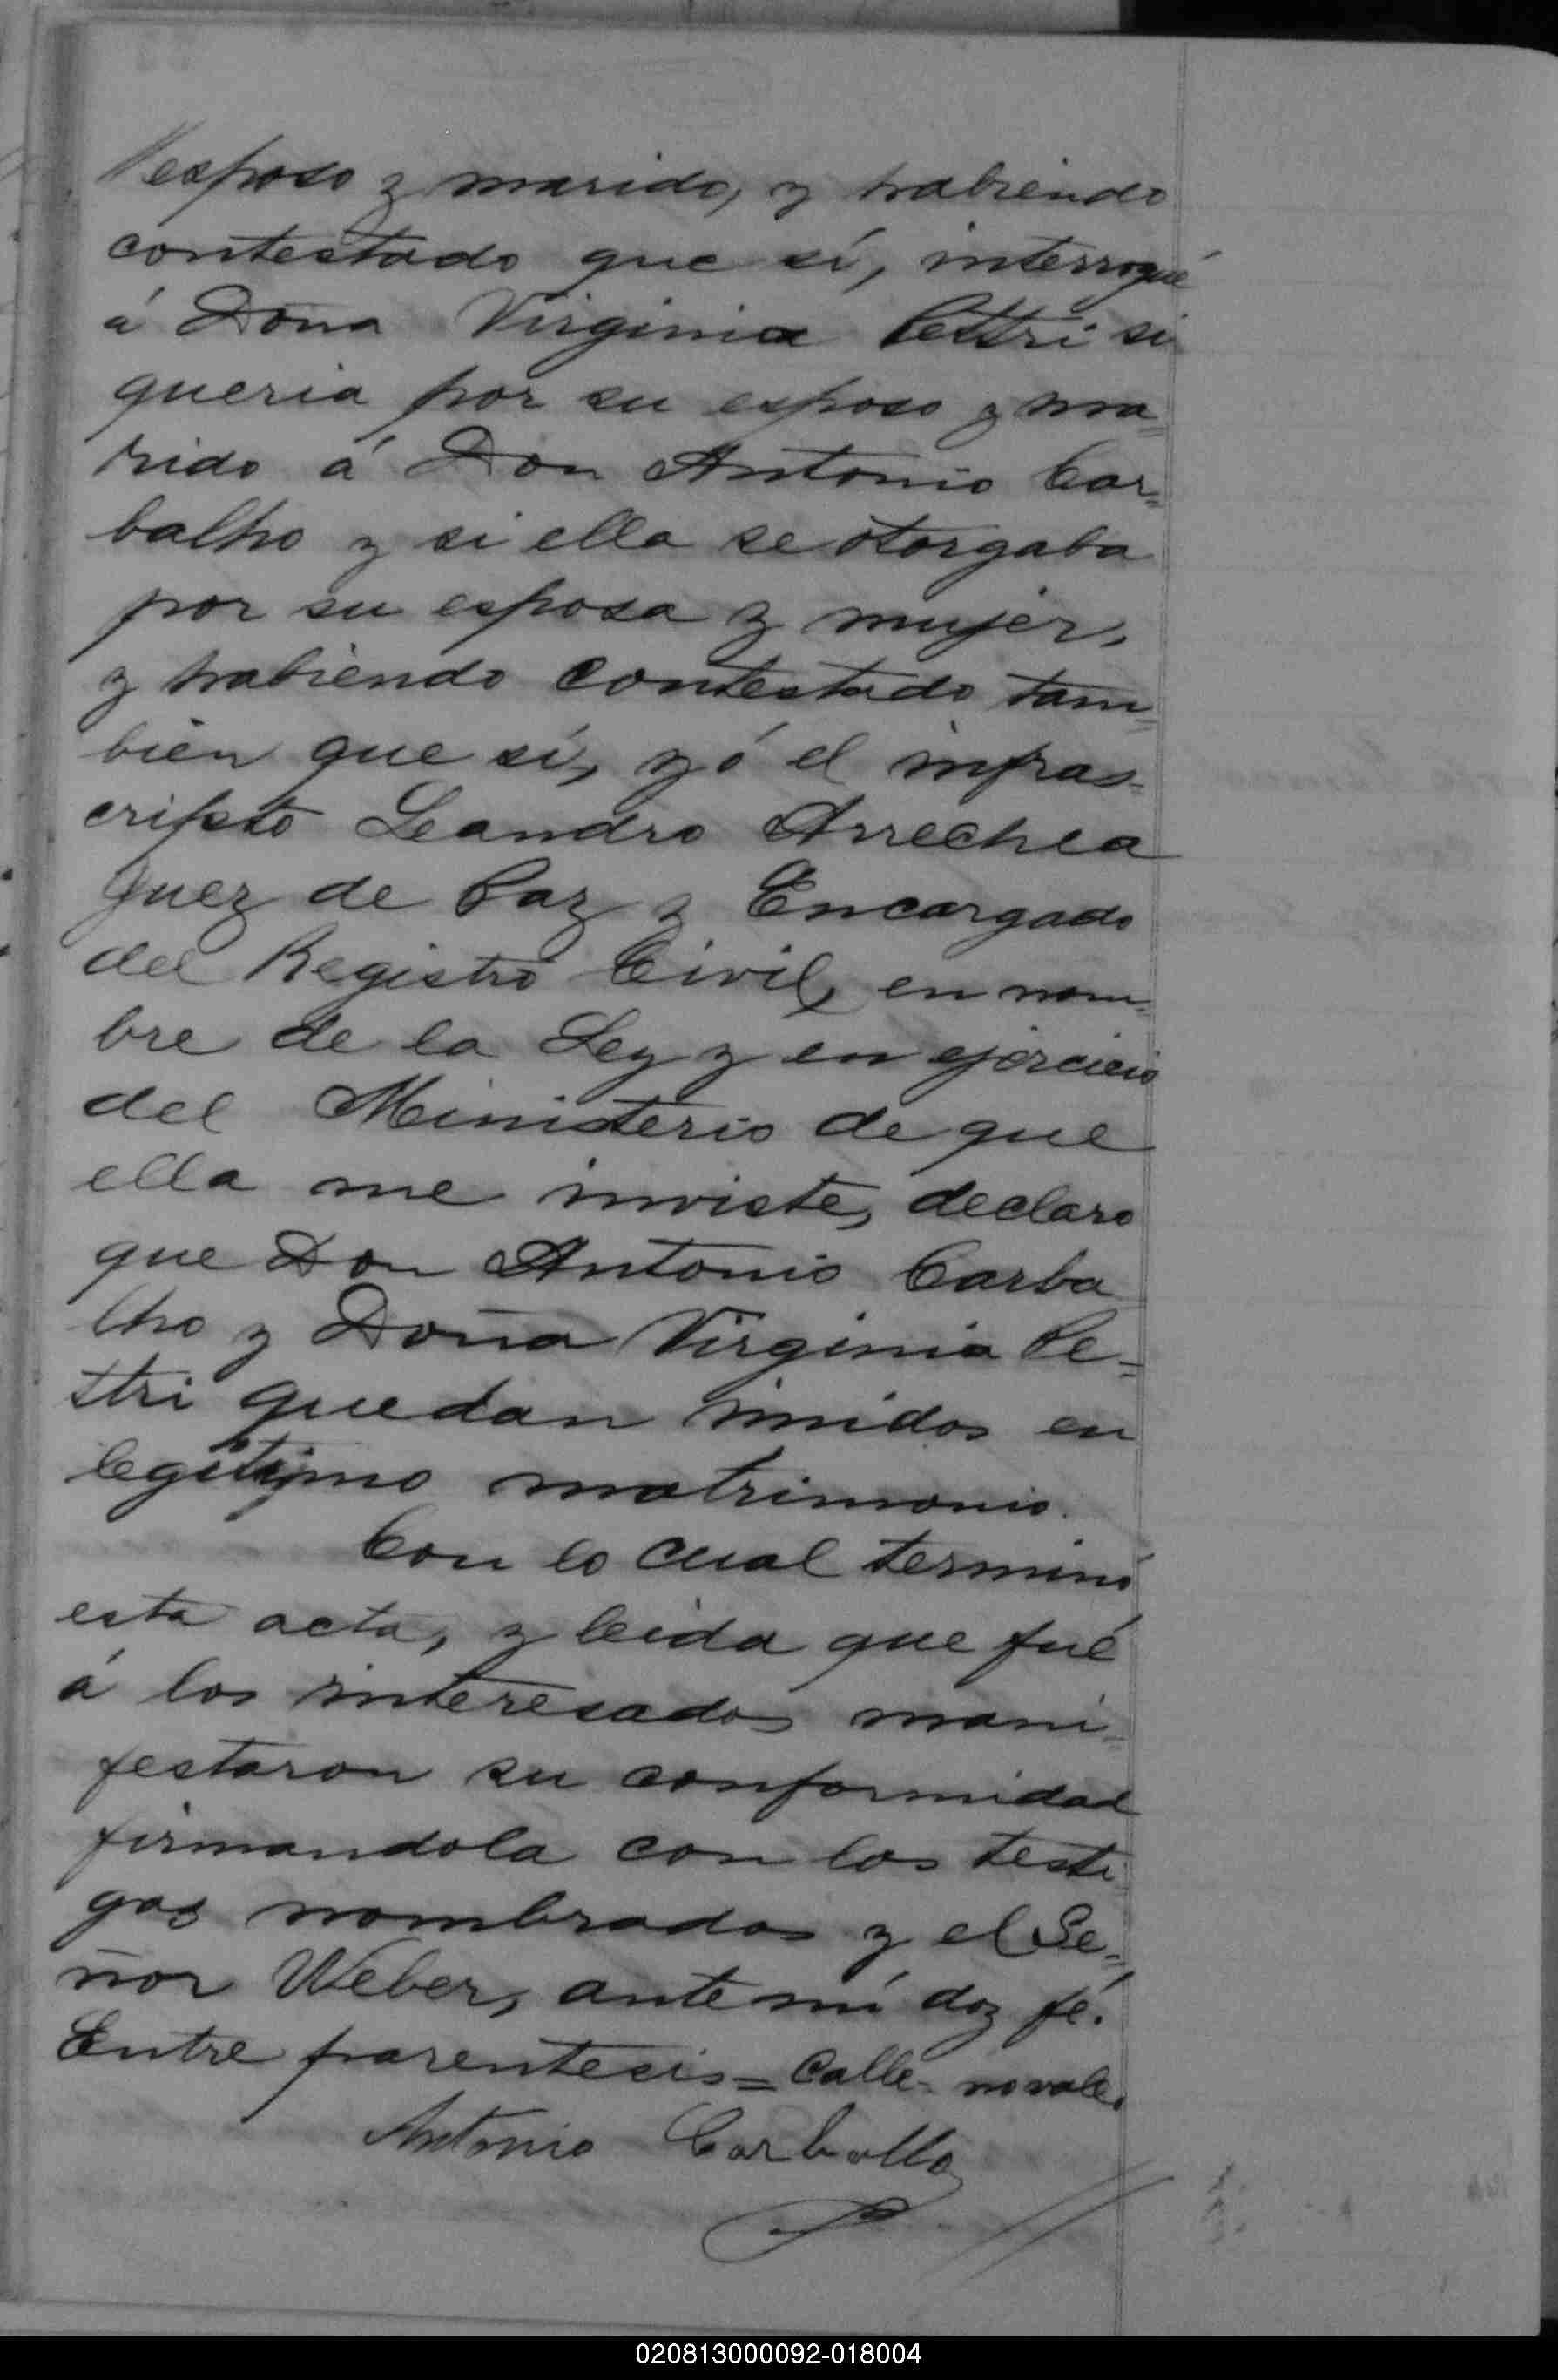 esposo y marido, y habiendo
contestado que sí, interrogué
á Doña Virginia Pettri si
queria por su esposo y ma=
rido á Don Antonio Car=
balho y si ella se otorgaba
por su esposa y mujer,
y habiendo contestado tam=
bien que sí, yó el infras=
cripto Leandro Arrechea
Juez de Paz y Encargado
del Registro Civil, en nom=
bre de la Ley y en ejercicio
del Ministerio de que
ella me inviste, declaro
que Don Antonio Carba
lho y Doña Virginia Pe=
ttri quedan únidos en
legitimo matrimonio.
Con lo cual terminó
esta acta, y leida que fué
á los interesados mani=
festaron su conformidad
firmandola con los testi
gos nombrados y el Se=
ñor Weber, ante mí doy fé.
Entre parentesis = Calle = no vale.
Antonio Carballo
020813000092-018004